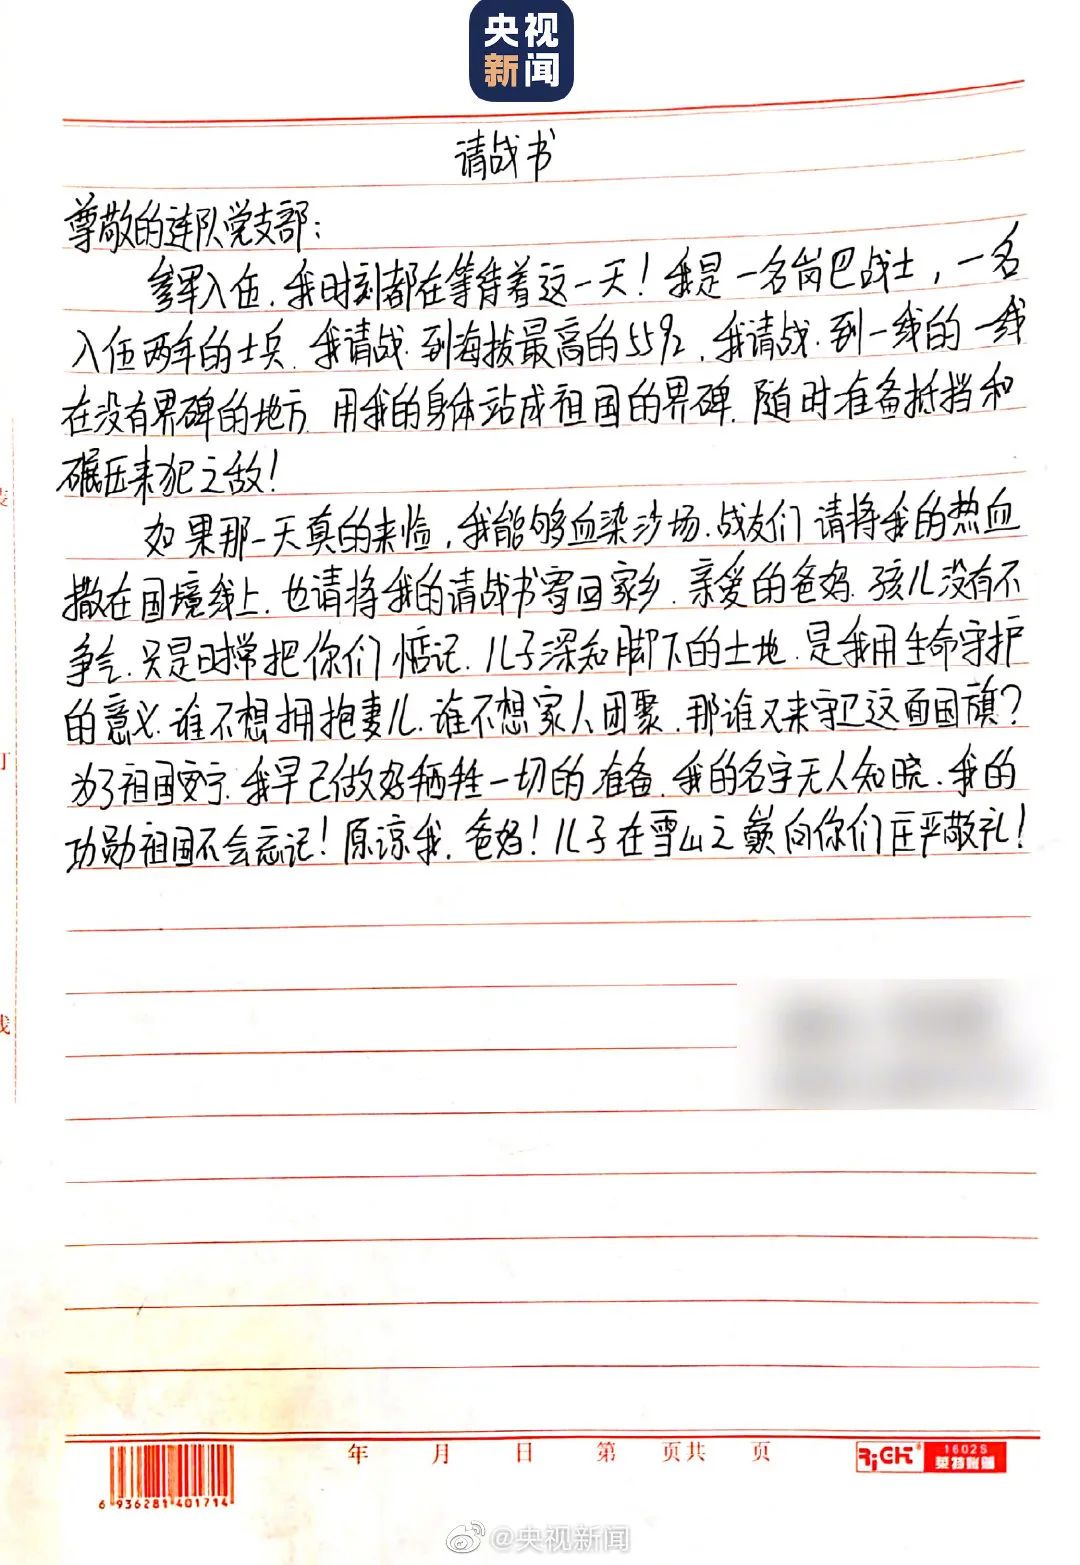 央视
新闻
请战书
尊敬的连队党支部：
参军入伍，我时刻都在等待着这一天！我是一名岗巴战士，一名
入伍两年的士兵．我请战．到海拔最高的5592，我请战．到一线的一线
在没有界碑的地方．用我的身体站成祖国的界碑．随时准备抵挡和
碾压来犯之敌！
如果那一天真的来临，我能够血染沙场．战友们 请将我的热血
撒在国境线上．也请将我的请战书寄回家乡．亲爱的爸妈．孩儿没有不
争气．只是时常把你们惦记．儿子深知脚下的土地．是我用生命守护
的意义．谁不想拥抱妻儿．谁不想家人团聚．那谁又来守卫这面国旗？
为了祖国安宁．我早已做好牺牲一切的准备．我的名字无人知晓．我的
功勋祖国不会忘记！原谅我．爸妈！儿子在雪山之巅向你们庄严敬礼！
订
线
年 月 日 第 页共 页
RiCH
1602S
莱特附辉
6 936281 401714
@央视新闻